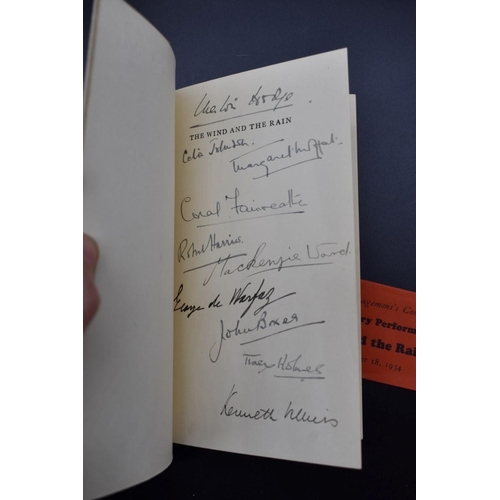 Merton Hodge.
THE WIND AND THE RAIN
Celia Johnson.
Margaret Moffat.
Coral Fairweather
Robert Harris.
Mackenzie Ward
George de Warfaz
John Boxer
Tracy Holmes
Kenneth Villiers
agement's Co
ry Perform
d the Rai
r 18, 1934